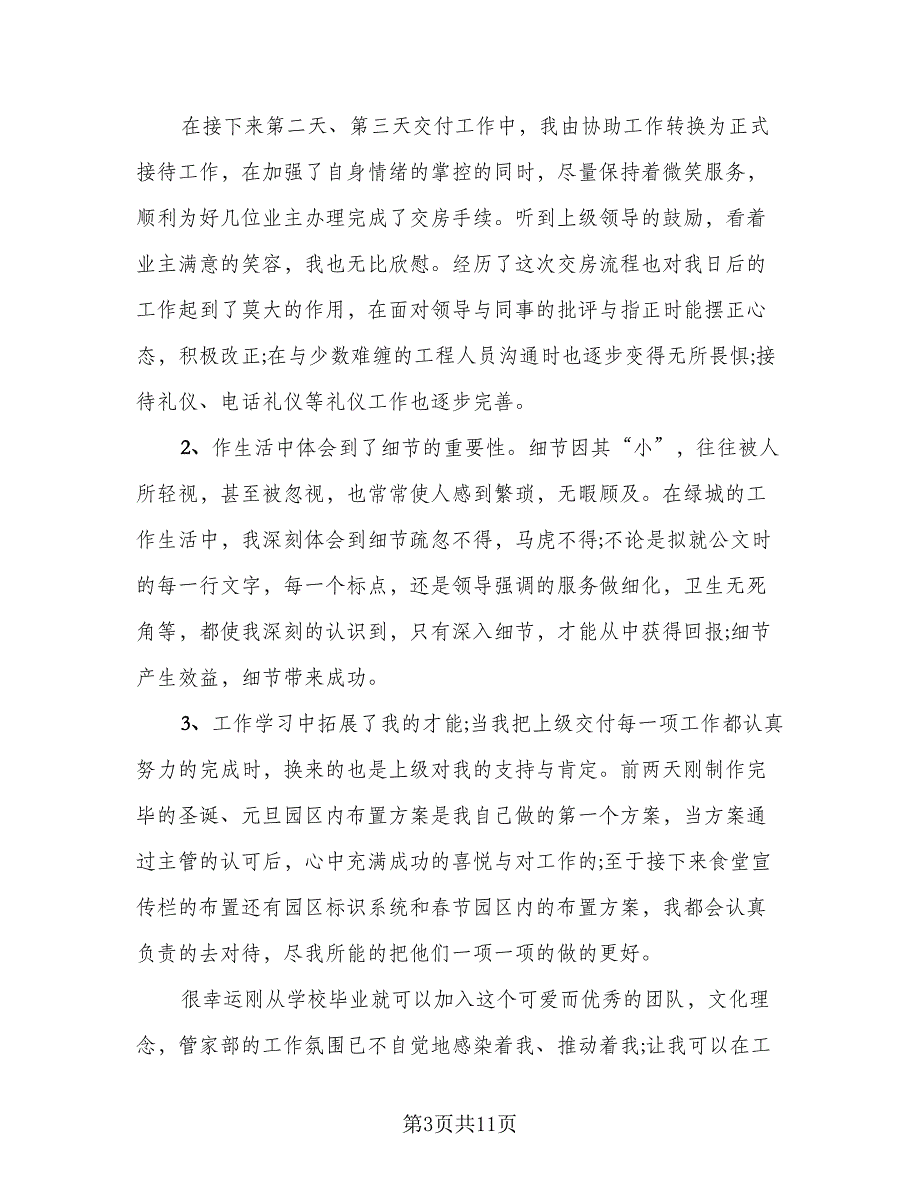 在接下来第二天、第三天交付工作中，我由协助工作转换为正式
接待工作，在加强了自身情绪的掌控的同时，尽量保持着微笑服务，
顺利为好几位业主办理完成了交房手续。听到上级领导的鼓励，看着
业主满意的笑容，我也无比欣慰。经历了这次交房流程也对我日后的
工作起到了莫大的作用，在面对领导与同事的批评与指正时能摆正心
态，积极改正;在与少数难缠的工程人员沟通时也逐步变得无所畏惧;接
待礼仪、电话礼仪等礼仪工作也逐步完善。
2、作生活中体会到了细节的重要性。细节因其“小”，往往被人
所轻视，甚至被忽视，也常常使人感到繁琐，无暇顾及。在绿城的工
作生活中，我深刻体会到细节疏忽不得，马虎不得;不论是拟就公文时
的每一行文字，每一个标点，还是领导强调的服务做细化，卫生无死
角等，都使我深刻的认识到，只有深入细节，才能从中获得回报;细节
产生效益，细节带来成功。
3、工作学习中拓展了我的才能;当我把上级交付每一项工作都认真
努力的完成时，换来的也是上级对我的支持与肯定。前两天刚制作完
毕的圣诞、元旦园区内布置方案是我自己做的第一个方案，当方案通
过主管的认可后，心中充满成功的喜悦与对工作的;至于接下来食堂宣
传栏的布置还有园区标识系统和春节园区内的布置方案，我都会认真
负责的去对待，尽我所能的把他们一项一项的做的更好。
很幸运刚从学校毕业就可以加入这个可爱而优秀的团队，文化理
念，管家部的工作氛围已不自觉地感染着我、推动着我;让我可以在工
第3页共11页